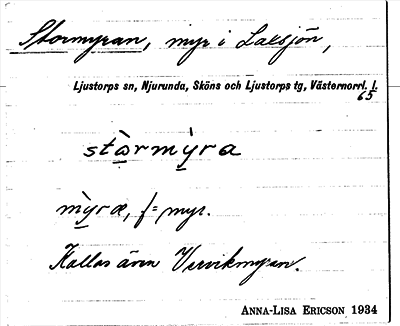 Stormyran, myr i Laksjön,
Ljustorps sn, Njurunda, Sköns och Ljustorps tg, Västernorrl. l.
65
stòrmỳra
mỳræ, f = myr.
Kallas även Vervikmyran.
ANNA-LISA ERICSON 1934